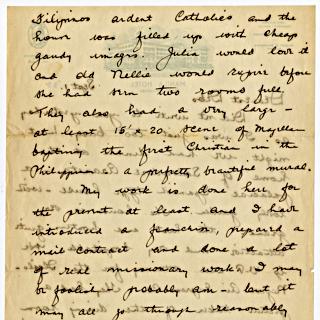 Filipinos ardent Catholics and the
house was filled up with cheap
gaudy images. Julia would love it
and old Nellie would expire before
she had seen two rooms full.
They also had a very large -
at least 15' x 20' scene of Magellan
baptizing the first Christian in the
Philippines - a perfectly beautiful mural.
My work is done here for
the present at least and I have
introduced a franchise, prepared a
mail contract and done a lot
of real missionary work. I may
be foolish - probably am - but it
may all go through reasonably